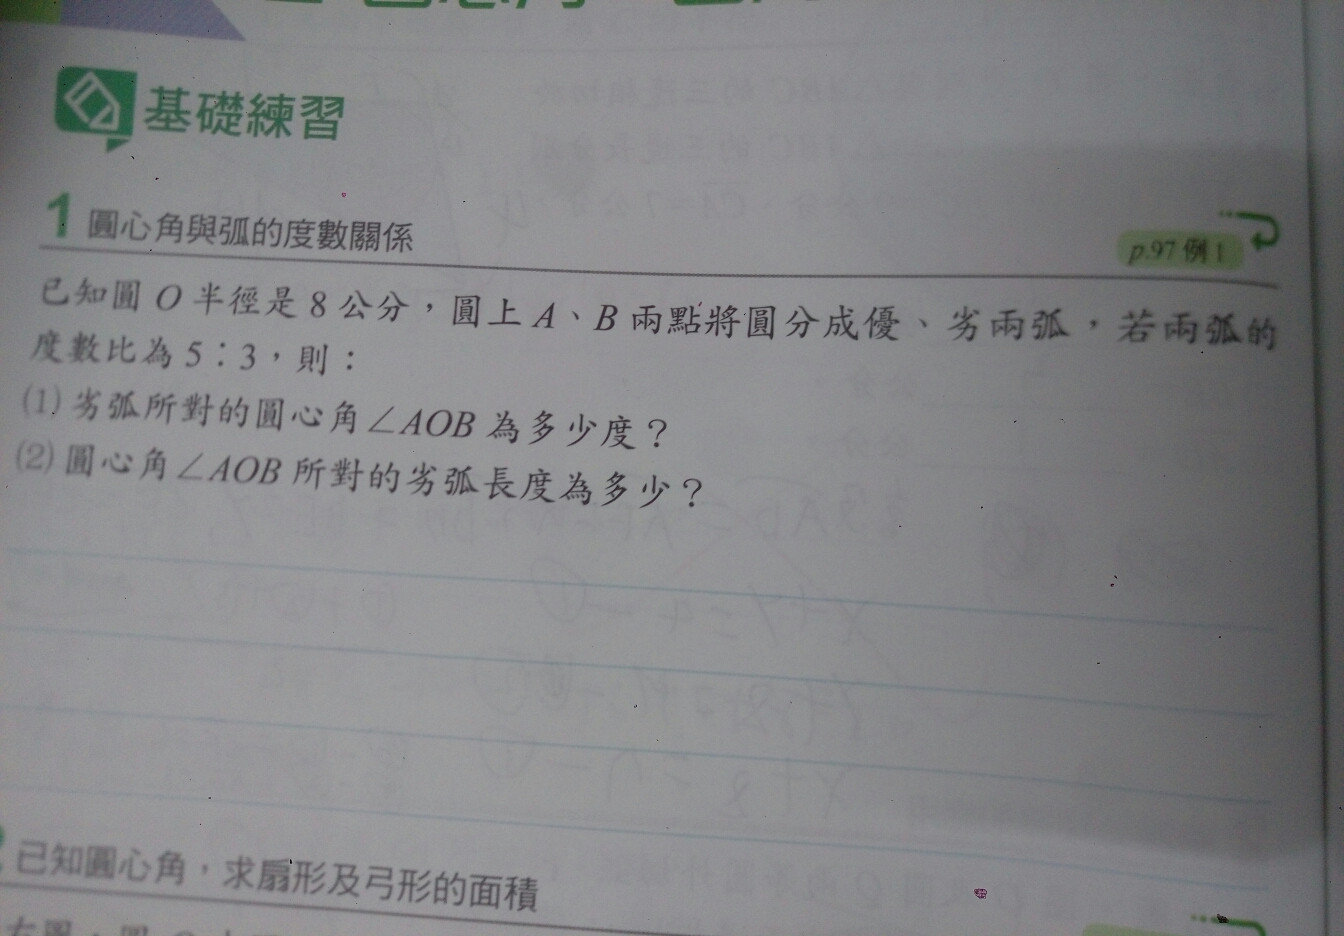 基礎練習
1 圓心角與弧的度數關係
p.97 例 1
已知圓 O 半徑是 8 公分，圓上 A、B 兩點將圓分成優、劣兩弧，若兩弧的
度數比為 5：3，則：
(1) 劣弧所對的圓心角∠AOB 為多少度？
(2) 圓心角∠AOB 所對的劣弧長度為多少？
已知圓心角，求扇形及弓形的面積